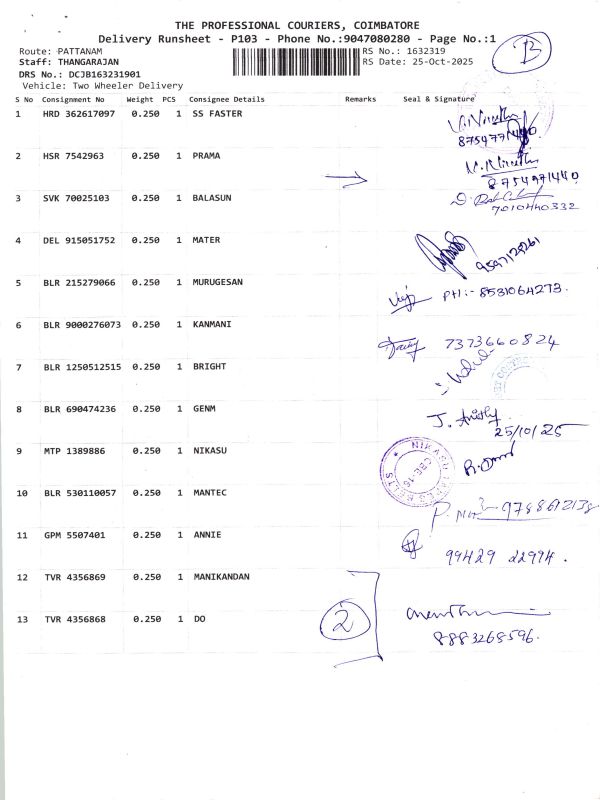 THE PROFESSIONAL COURIERS, COIMBATORE
Delivery Runsheet - P103 - Phone No.:9047080280 - Page No.:1
Route: PATTANAM RS No.: 1632319
Staff: THANGARAJAN RS Date: 25-Oct-2025
DRS No.: DCJB163231901
Vehicle: Two Wheeler Delivery
S No Consignment No Weight PCS Consignee Details Remarks Seal & Signature
1 HRD 362617097 0.250 1 SS FASTER
8754771440
2 HSR 7542963 0.250 1 PRAMA
8754771440
3 SVK 70025103 0.250 1 BALASUN
7010440332
4 DEL 915051752 0.250 1 MATER
5 BLR 215279066 0.250 1 MURUGESAN
PH:- 8531064273.
6 BLR 9000276073 0.250 1 KANMANI
7373660824
7 BLR 1250512515 0.250 1 BRIGHT
8 BLR 690474236 0.250 1 GENM
25/10/25
9 MTP 1389886 0.250 1 NIKASU
CBE-16
10 BLR 530110057 0.250 1 MANTEC
11 GPM 5507401 0.250 1 ANNIE
99429 22974.
12 TVR 4356869 0.250 1 MANIKANDAN
13 TVR 4356868 0.250 1 DO
2
8883268596.